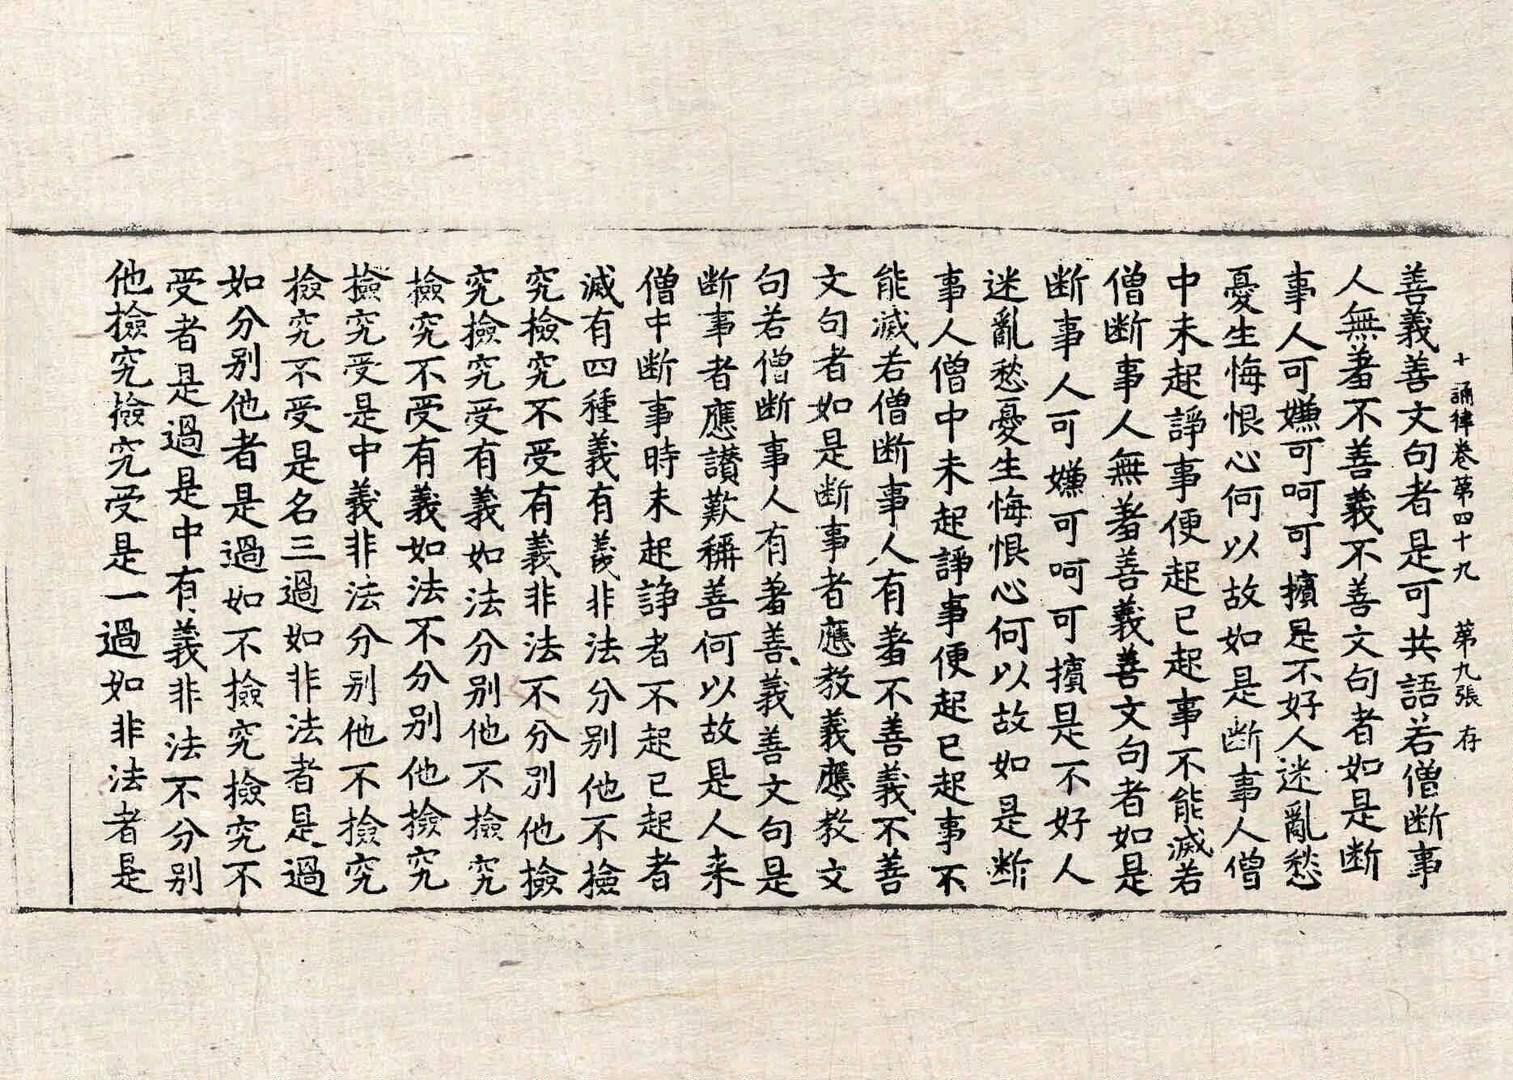 十誦律卷第四十九　第九張　存
善義善文句者是可共語若僧断事
人無羞不善義不善文句者如是断
事人可嫌可呵可擯是不好人迷亂愁
憂生悔恨心何以故如是断事人僧
中未起諍事便起已起事不能滅若
僧断事人無羞善義善文句者如是
断事人可嫌可呵可擯是不好人
迷亂愁憂生悔恨心何以故如是断
事人僧中未起諍事便起已起事不
能滅若僧断事人有羞不善義不善
文句者如是断事者應教義應教文
句若僧断事人有羞善義善文句是
断事者應讃歎稱善何以故是人来
僧中断事時未起諍者不起已起者
滅有四種義有義非法分别他不撿
究撿究不受有義非法不分别他撿
究撿究受有義如法分别他不撿究
撿究不受有義如法不分别他撿究
撿究受是中義非法分别他不撿究
撿究不受是名三過如非法者是過
如分别他者是過如不撿究撿究不
受者是過是中有義非法不分别
他撿究撿究受是一過如非法者是